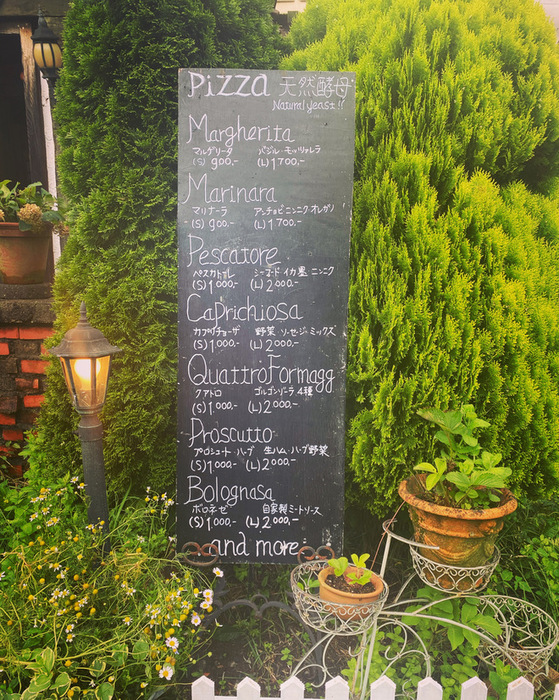 Pizza 天然酵母
Natural yeast!!
Margherita
マルゲリータ バジル・モッツァレラ
(S) 900,- (L) 1700,-
Marinara
マリナーラ アンチョビニンニク・オレガノ
(S) 900,- (L) 1700,-
Pescatore
ペスカトーレ シーフード イカ墨 ニンニク
(S) 1,000,- (L) 2,000,-
Caprichiosa
カプリチョーザ 野菜・ソーセージ・ミックス
(S) 1,000,- (L) 2,000,-
Quattro Formagg
クアトロ ゴルゴンゾーラ 4種
(S) 1,000,- (L) 2,000,-
Proscutto
プロシュート・ハーブ 生ハム・ハーブ野菜
(S) 1,000,- (L) 2,000,-
Bolognasa
ボロネゼ 自家製ミートソース
(S) 1,000,- (L) 2,000,-
and more